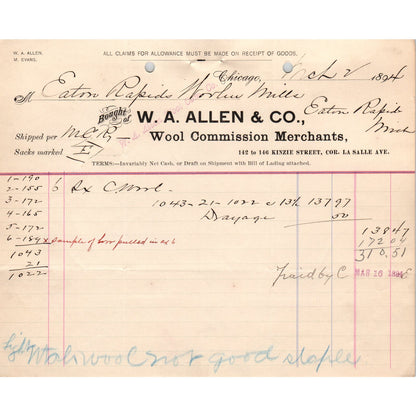 W. A. ALLEN.
M. EVANS.
ALL CLAIMS FOR ALLOWANCE MUST BE MADE ON RECEIPT OF GOODS.
Chicago, Mch 2 1894
M Eaton Rapids Woolen Mills
Eaton Rapids
Mich
Bought of
W. A. ALLEN & CO.,
Wool Commission Merchants,
142 to 146 KINZIE STREET, COR. LA SALLE AVE.
Shipped per M.C.R.
Sacks marked E
TERMS:—Invariably Net Cash, or Draft on Shipment with Bill of Lading attached.
1-190
2-155 6 Sx C Wool
3-172 1043-21-1022 13½ 137 97
4-165 Drayage 50
5-172 138 47
6-189 x sample of low pulled in 6 172 04
1043 310.51
21
1022 Paid by C MAR 10 189
wool not good staple